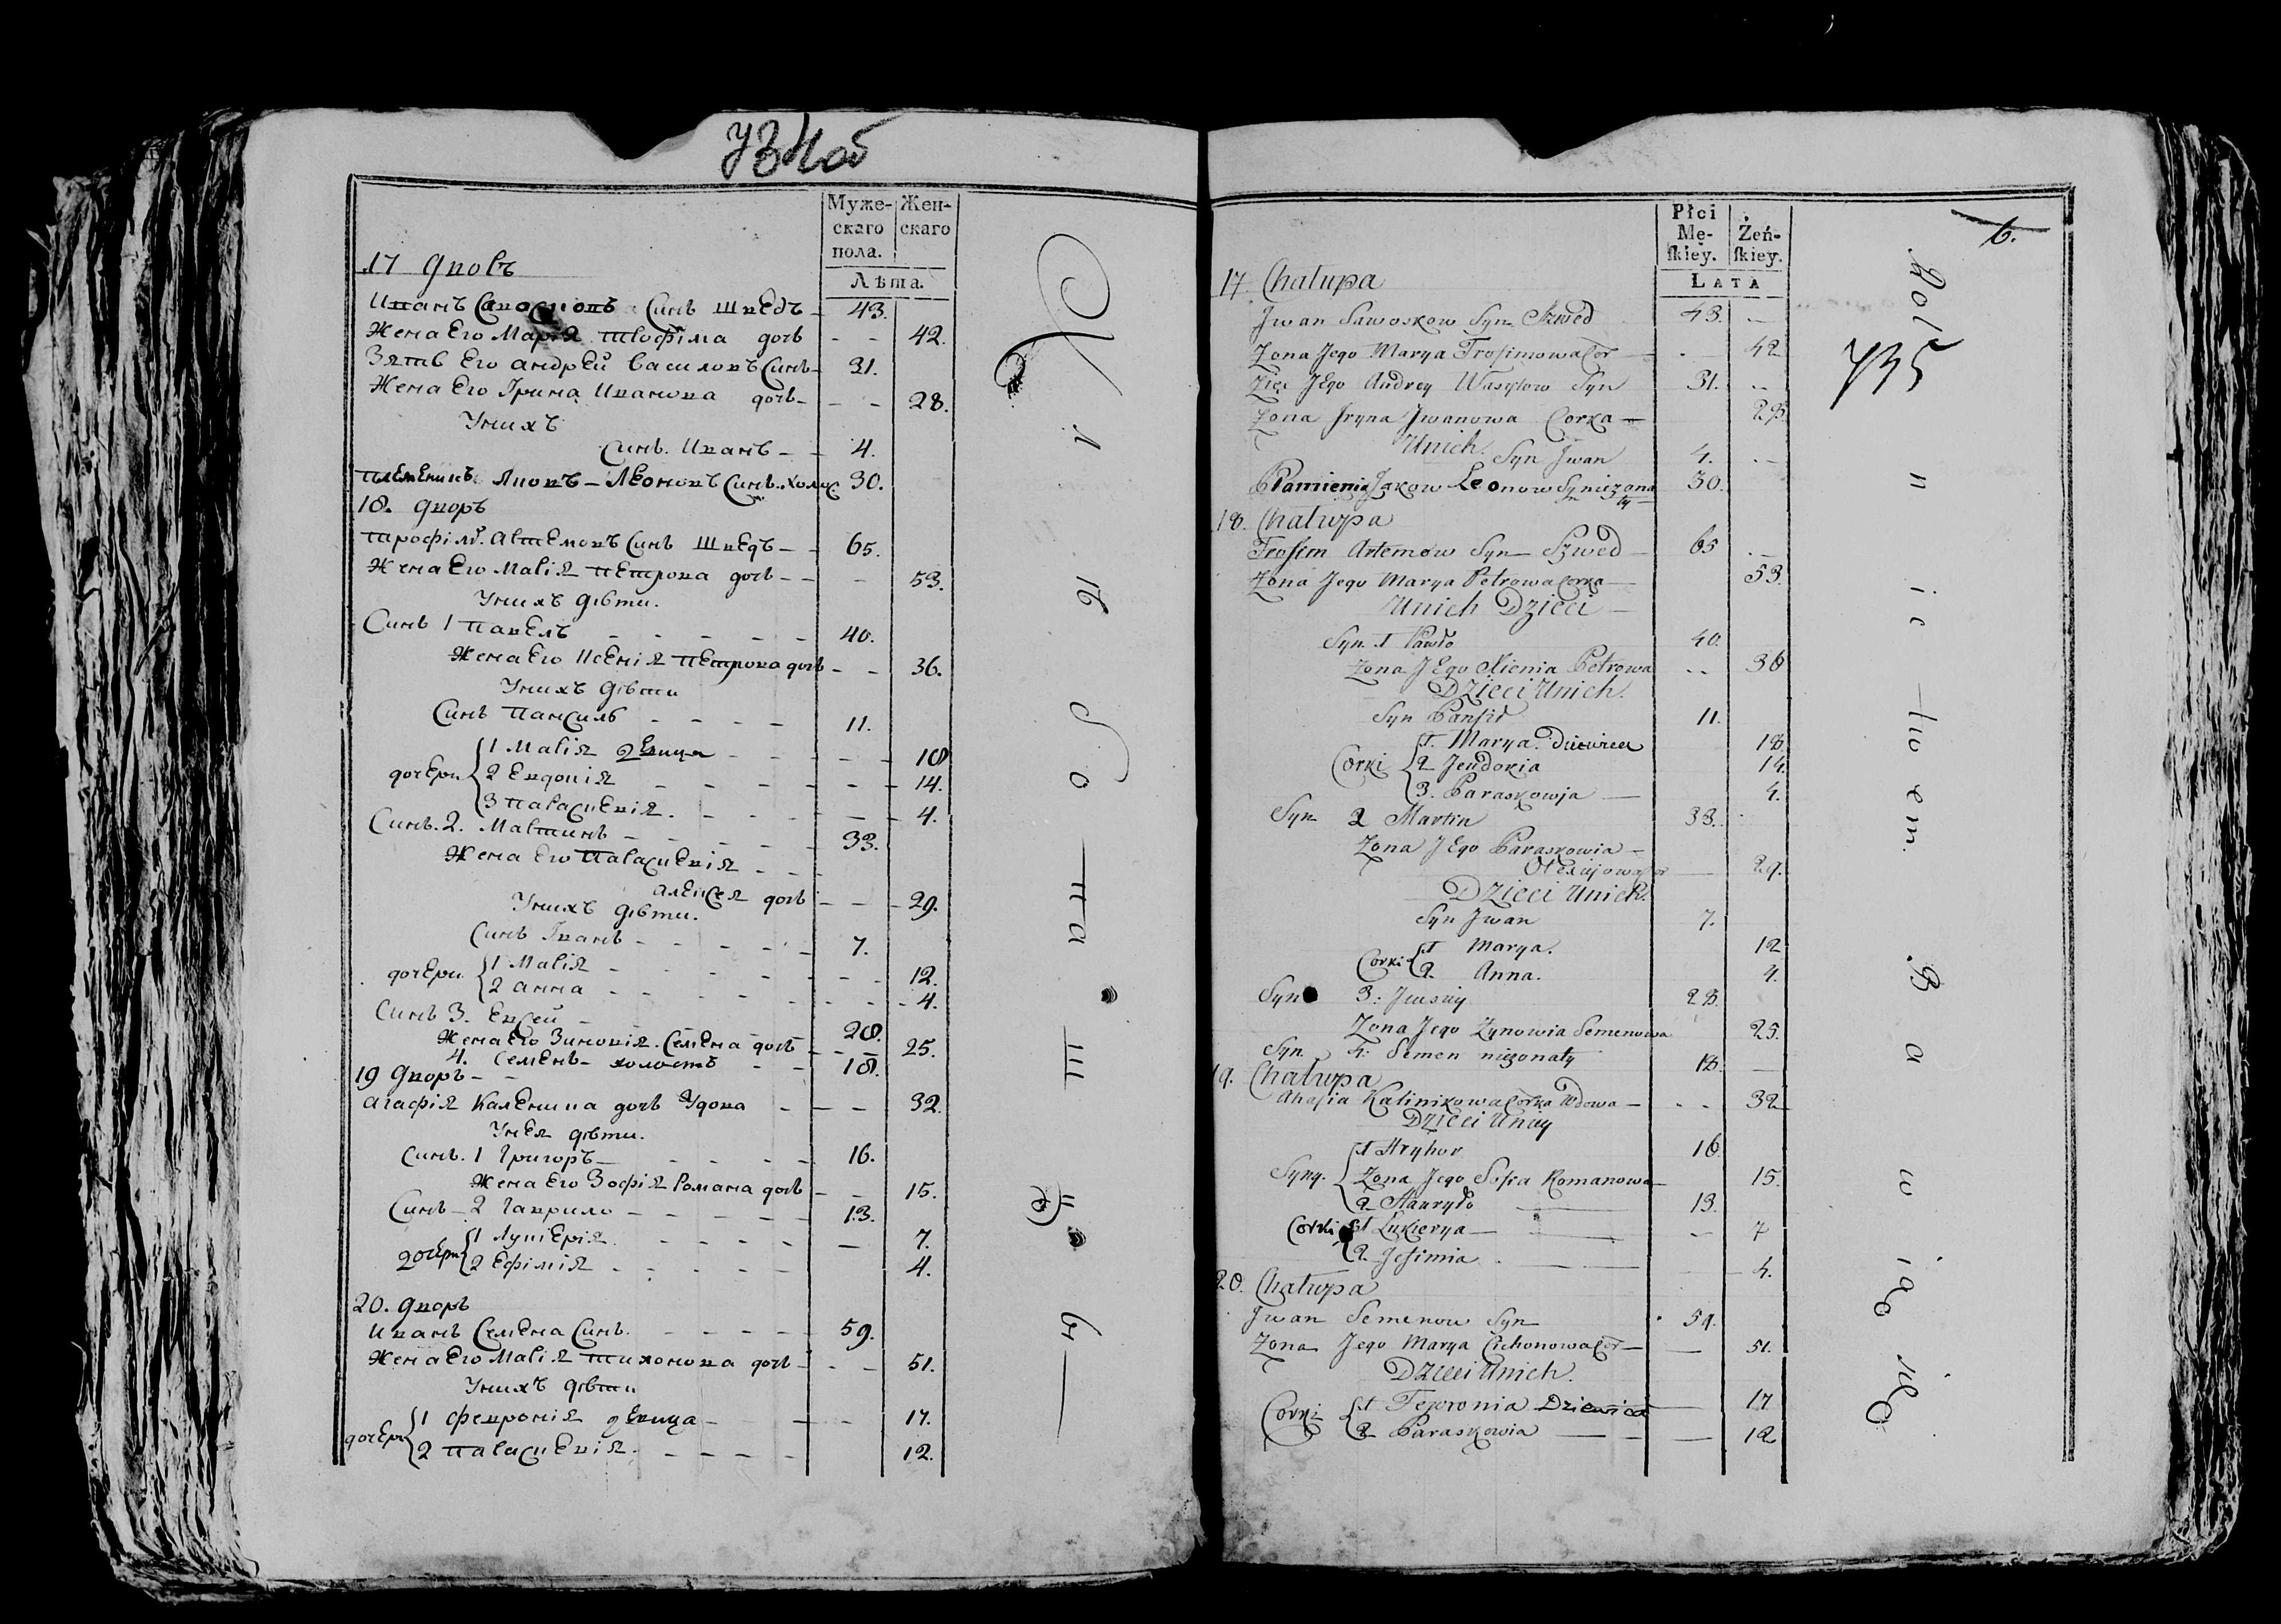 734об
Муже-
скаго
пола.
Жен-
скаго
Лѣта.
17 дворъ
Иванъ Савосковъ Синъ Шведъ 43.
Жена Его Марія трофіма дочь 42.
Зять Его андрей василовъ Синъ 31.
Жена Его Ірина Иванова дочь 28.
Унихъ
Синъ. Иванъ 4.
племеникъ Яковъ Леоновъ Синъ холос 30.
18. дворъ
трофімъ. артемовъ Синъ Шведъ 65.
Жена Его Марія петрова дочь 53.
Унихъ дѣти.
Синъ 1 павелъ 40.
Жена Его Ксенія петрова дочь 36.
Унихъ дѣти
Синъ пансиль 11.
дочери 1 Марія девица 18
2 Евдокія 14.
3 параскевія. 4.
Синъ. 2. Мартинъ 33.
Жена Его параскевія
алексея дочь 29.
Унихъ дѣти.
Синъ Іванъ 7.
дочери 1 Марія 12.
2 анна 4.
Синъ 3. Евсей 28.
Жена Его Зиновія. Семена дочь 25.
4. Семенъ холостъ 18.
19 дворъ
агафія Каленика дочь Удова 32.
Унея дѣти.
Синъ. 1 Григоръ 16.
Жена Его Зофія Романа дочь 15.
Синъ 2 гаврило 13.
дочери 1 Лукерія. 7.
2 Ефимія 4.
20. дворъ
Иванъ Семена Синъ. 59.
Жена Его Марія тихонова дочь 51.
Унихъ дѣти
дочери 1 февронія девица 17.
2 параскевія. 12.
6.
735
Płci
Mę-
skiey.
Żeń-
skiey.
LATA
17. Chałupa
Jwan Sawoskow Syn Szwed 43.
Zona Jego Marya Trofimowa Cor 42
Zięć JEgo Andrey Wasylow Syn 31.
Zona Jryna Jwanowa Corka 28
Unich. Syn Jwan 4.
Plamienik Jakow Leonow Syn niezonaty 30.
18. Chałupa
Trofim Artemow Syn Szwed 65
Zona Jego Marya Petrowa Corka 53.
Unich Dzieci
Syn 1 Pawło 40.
Zona JEgo Xienia Petrowa 36
Dzieci Unich.
Syn Pansił 11.
Corki 1. Marya. Dziewica 18.
2 Jeudokia 14.
3. Paraskowja 4.
Syn 2 Martin 33.
Zona JEgo Paraskowia
Olexijowa Cor 29.
Dzieci Unich.
Syn Jwan 7.
Corki 1 Marya. 12
2. Anna. 4.
Syn 3: Jewsiy 28.
Zona Jego Zynowia Semenowa 25.
Syn 4: Semen niezonaty 18.
19. Chałupa
Ahafia Kalinikowa Corka Wdowa 32
Dzieci Uniey
Syny. 1 Hryhor 16
Zona Jego Sofia Romanowa 15.
2 Hauryło 13.
Corki 1 Łukierya 7
2. Jefimia 4.
20. Chałupa
Jwan Semenow Syn 59.
Zona Jego Marya Cichonowa Cor 51.
Dzieci Unich.
Corki 1 Fewronia Dziewica 17
2 Paraskowia 12